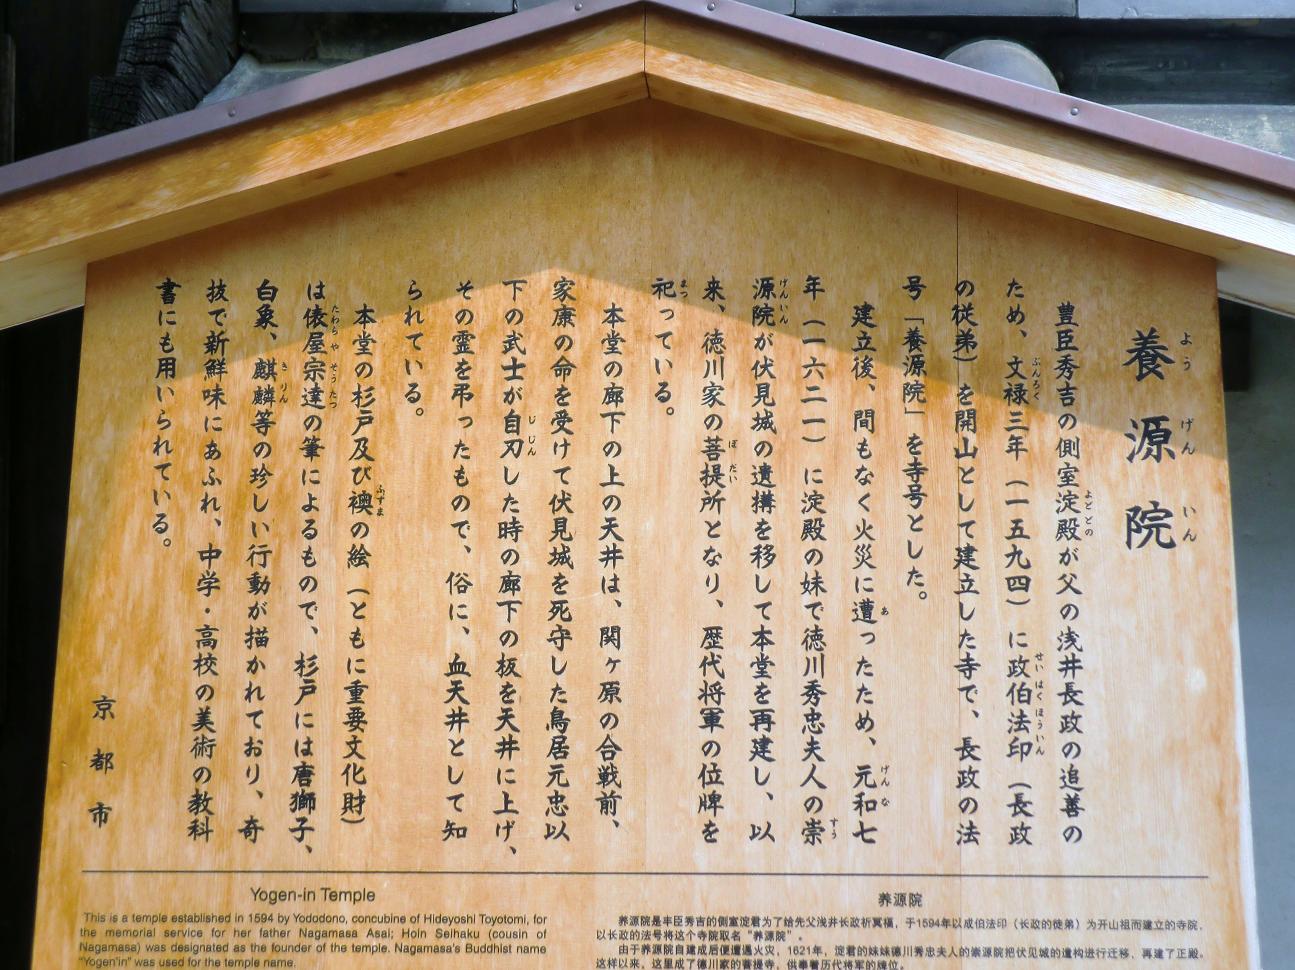 養源院
よう げん いん
豊臣秀吉の側室淀殿が父の浅井長政の追善の
よどどの
ため、文禄三年(一五九四)に政伯法印(長政
ぶんろく せいはくほういん
の従弟)を開山として建立した寺で、長政の法
号「養源院」を寺号とした。
建立後、間もなく火災に遭ったため、元和七
あ げんな
年(一六二一)に淀殿の妹で徳川秀忠夫人の崇
すう
源院が伏見城の遺構を移して本堂を再建し、以
げんいん
来、徳川家の菩提所となり、歴代将軍の位牌を
ぼだい
祀っている。
まつ
本堂の廊下の上の天井は、関ヶ原の合戦前、
家康の命を受けて伏見城を死守した鳥居元忠以
下の武士が自刃した時の廊下の板を天井に上げ、
じじん
その霊を弔ったもので、俗に、血天井として知
られている。
本堂の杉戸及び襖の絵(ともに重要文化財)
ふすま
は俵屋宗達の筆によるもので、杉戸には唐獅子、
たわらや そうたつ
白象、麒麟等の珍しい行動が描かれており、奇
きりん
抜で新鮮味にあふれ、中学・高校の美術の教科
書にも用いられている。
京都市
Yogen-in Temple
This is a temple established in 1594 by Yododono, concubine of Hideyoshi Toyotomi, for
the memorial service for her father Nagamasa Asai; HoIn Seihaku (cousin of
Nagamasa) was designated as the founder of the temple. Nagamasa's Buddhist name
"Yogen'in" was used for the temple name.
养源院
养源院是丰臣秀吉的侧室淀君为了给先父浅井长政祈冥福，于1594年以成伯法印（长政的徒弟）为开山祖而建立的寺院，
以长政的法号将这个寺院取名“养源院”。
由于养源院自建成后便遭遇火灾，1621年，淀君的妹妹德川秀忠夫人的崇源院把伏见城的遗构进行迁移，再建了正殿。
这样以来，这里成了德川家的菩提寺，供奉着历代将军的牌位。